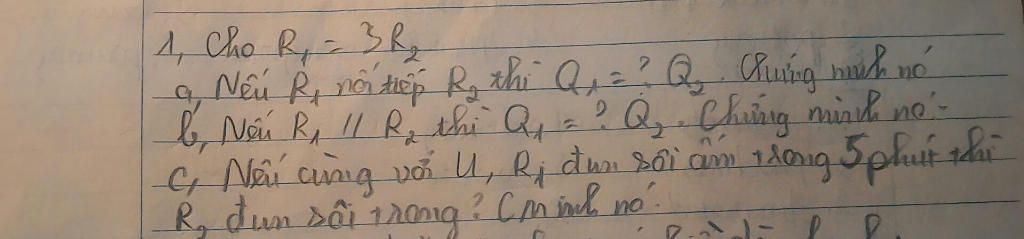 1, Cho R₁ = 3R₂
a, Nếu R₁ nối tiếp R₂ thì Q₁ = ? Q₂. Chứng minh nó
b, Nếu R₁ // R₂ thì Q₁ = ? Q₂. Chứng minh nó.
c, Nếu cùng với U, R₁ đun sôi ấm trong 5 phút thì
R₂ đun sôi trong? Cminh nó.